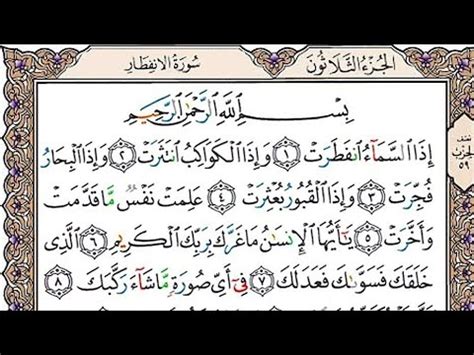 الجزء الثلاثون
سورة الانفطار
بِسْمِ ٱللَّهِ ٱلرَّحْمَٰنِ ٱلرَّحِيمِ
إِذَا ٱلسَّمَآءُ ٱنفَطَرَتْ ١ وَإِذَا ٱلْكَوَاكِبُ ٱنتَثَرَتْ ٢ وَإِذَا ٱلْبِحَارُ
فُجِّرَتْ ٣ وَإِذَا ٱلْقُبُورُ بُعْثِرَتْ ٤ عَلِمَتْ نَفْسٌ مَّا قَدَّمَتْ
وَأَخَّرَتْ ٥ يَٰٓأَيُّهَا ٱلْإِنسَٰنُ مَا غَرَّكَ بِرَبِّكَ ٱلْكَرِيمِ ٦ ٱلَّذِى
خَلَقَكَ فَسَوَّىٰكَ فَعَدَلَكَ ٧ فِىٓ أَىِّ صُورَةٍ مَّا شَآءَ رَكَّبَكَ ٨
نصف
الحزب
٥٩